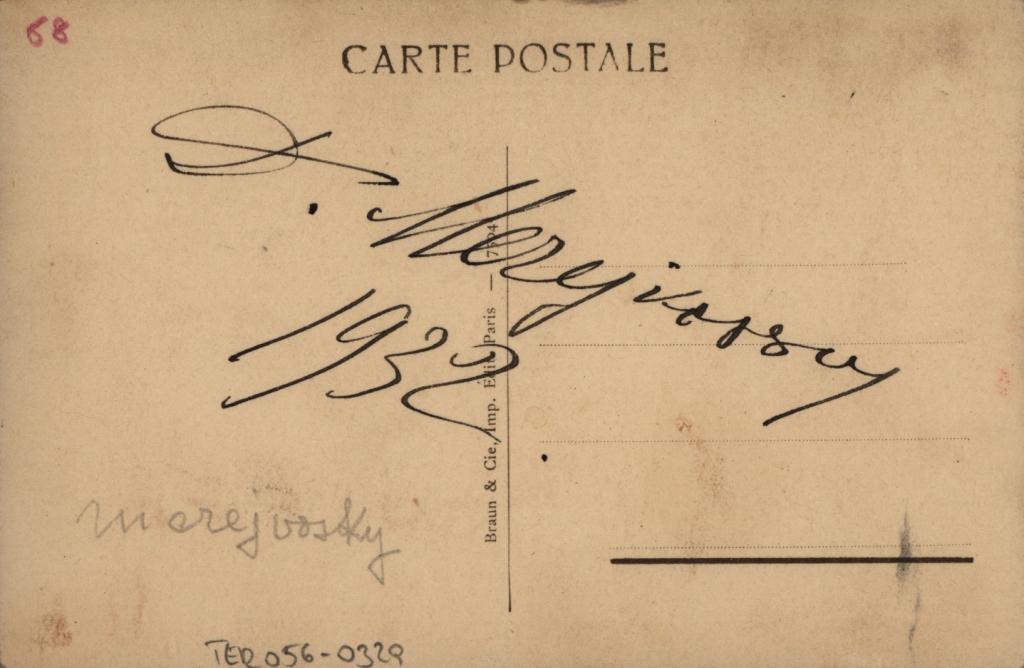 68
CARTE POSTALE
D. Merejvosky
1932.
Braun & Cie, Imp. Édit. Paris — 7504
merejvosky
TER056-0329